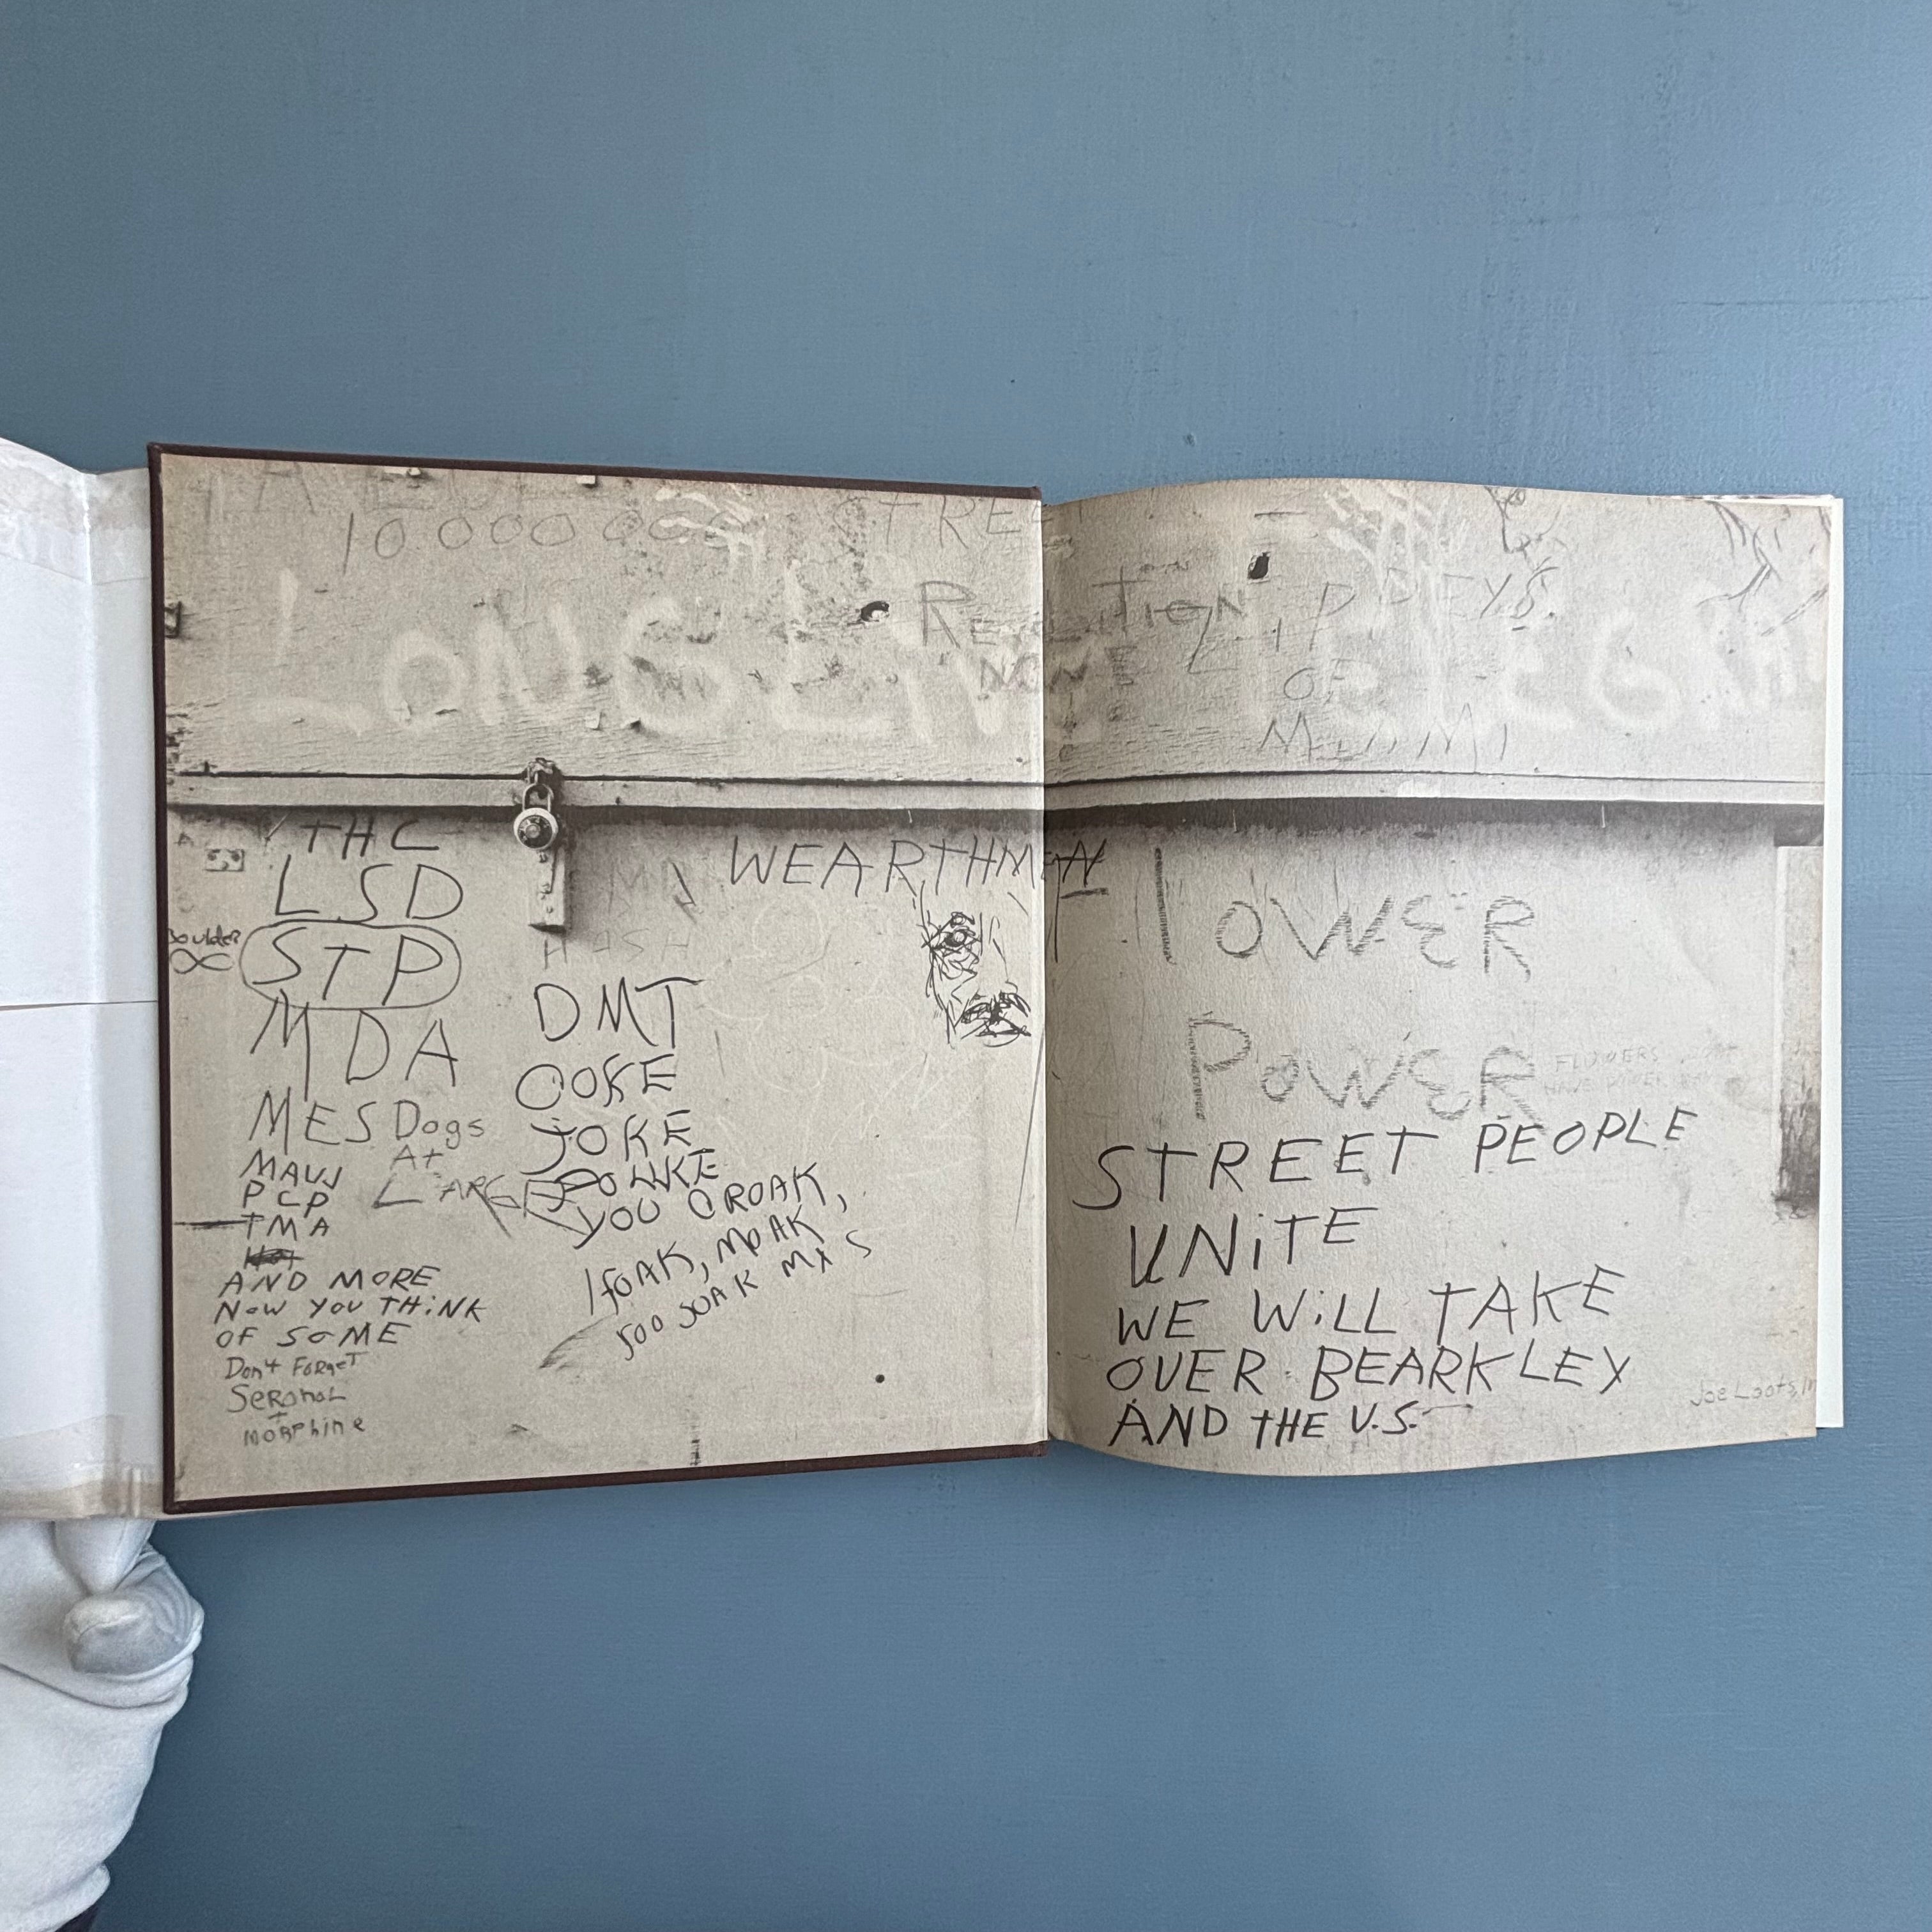 10 000 000 STREET
REVOLUTION
NOW
ZIPPEYS
OF
MIAMI
LONG LIVE
THC
LSD
STP
Boulder
MDA
MES
MAUJ
PCP
TMA
AND MORE
NOW YOU THiNK
OF SOME
Don't FORgeT
SeRonoL
+
MORPhine
Dogs
At
LARGE
HASH
DMT
COKE
JOKE
POLIKE
YOU CROAK,
I fOAK, MOAK
SOAK
WEARTHMEN
flOWER
POWER
FLOWERS
HAVE POWER
STREET PEOPLE
UNiTE
WE WiLL TAKE
OVER BEARKLEY
AND THE U.S.
Joe Loots